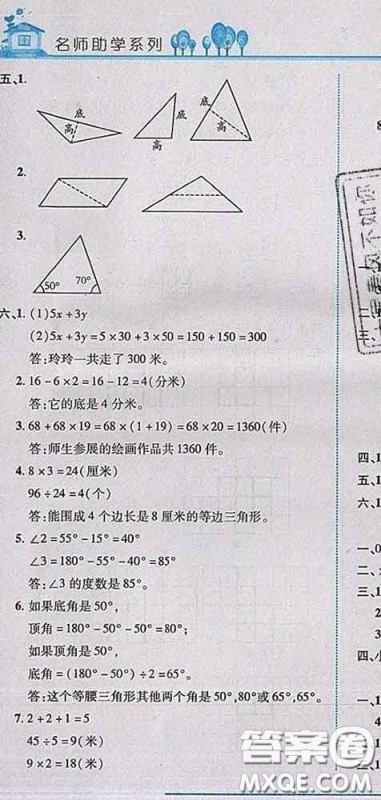 名师助学系列
五、1.
底
高
底
高
底
高
2.
3.
50°
70°
六、1. (1)5x+3y
(2)5x+3y=5×30+3×50=150+150=300
答:玲玲一共走了300米。
2. 16-6×2=16-12=4(分米)
答:它的底是4分米。
3. 68+68×19=68×(1+19)=68×20=1360(件)
答:师生参展的绘画作品共1360件。
4. 8×3=24(厘米)
96÷24=4(个)
答:能围成4个边长是8厘米的等边三角形。
5. ∠2=55°-15°=40°
∠3=180°-55°-40°=85°
答:∠3的度数是85°。
6. 如果底角是50°,
顶角=180°-50°-50°=80°;
如果顶角是50°,
底角=(180°-50°)÷2=65°。
答:这个等腰三角形其他两个角是50°,80°或65°,65°。
7. 2+2+1=5
45÷5=9(米)
9×2=18(米)
8
不如你
四、1
五、1
六、1
一、0
二、
三、1
2
四、小
一、1
4
二、1
答案圈
MXQE.COM